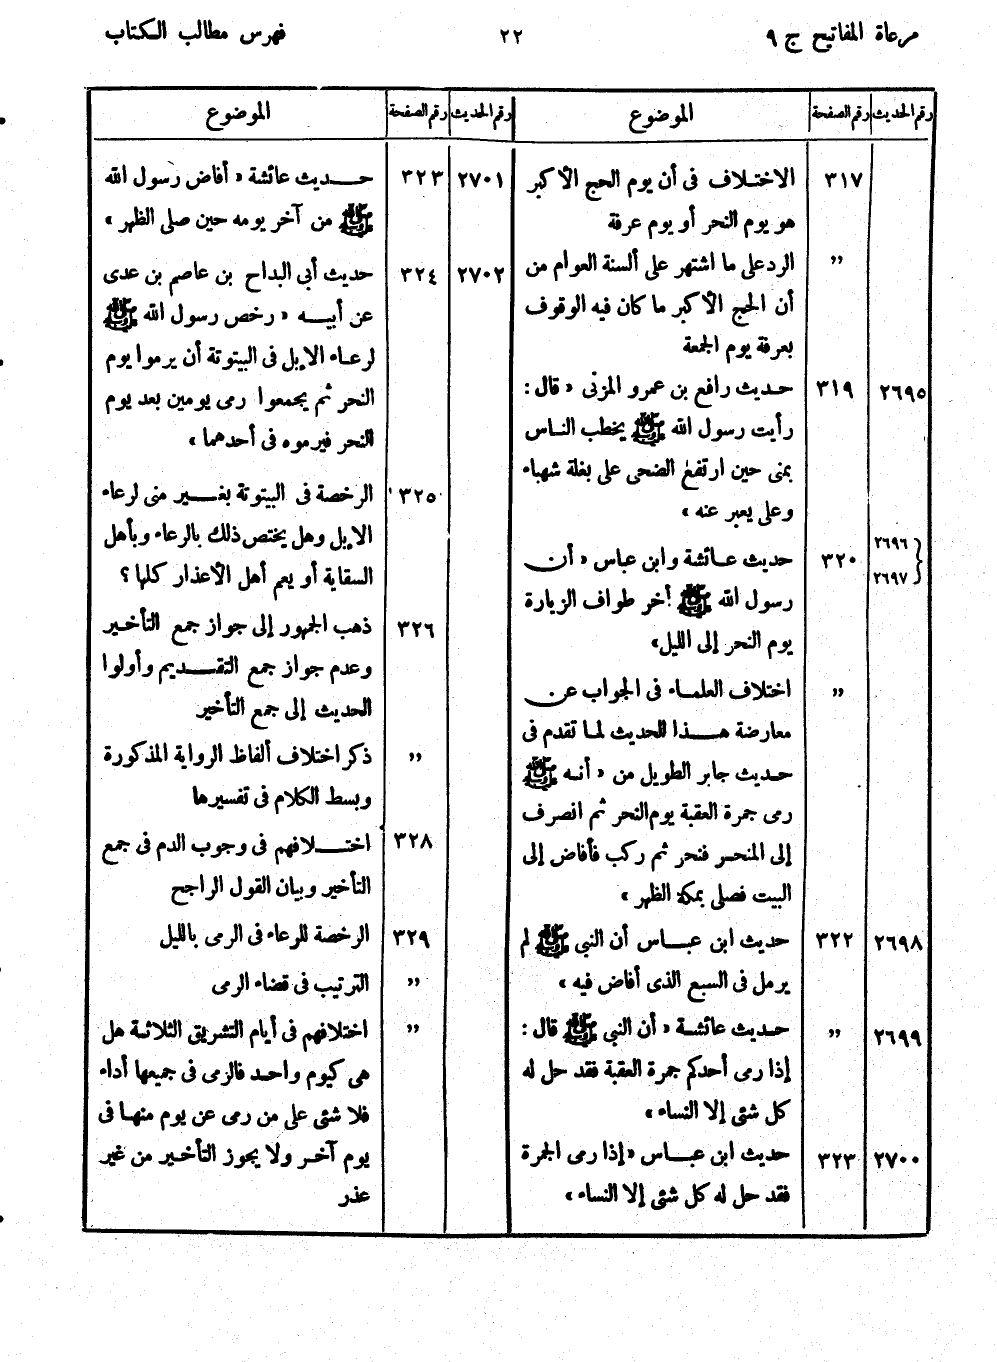 مرعاة المفاتيح ج ٩
٢٢
فهرس مطالب الكتاب
رقم الحديث رقم الصفحة الموضوع
٣١٧ الاختلاف فى أن يوم الحج الأكبر
هو يوم النحر أو يوم عرفة
,, الرد على ما اشتهر على ألسنة العوام من
أن الحج الأكبر ما كان فيه الوقوف
بعرفة يوم الجمعة
٢٦٩٥ ٣١٩ حديث رافع بن عمرو المزنى « قال :
رأيت رسول الله ﷺ يخطب الناس
بمنى حين ارتفع الضحى على بغلة شهباء
وعلى يعبر عنه »
٢٦٩٦
٢٦٩٧ } ٣٢٠ حديث عائشة وابن عباس « أن
رسول الله ﷺ أخر طواف الزيارة
يوم النحر إلى الليل»
,, اختلاف العلماء فى الجواب عن
معارضة هذا الحديث لما تقدم فى
حديث جابر الطويل من « أنه ﷺ
رمى جمرة العقبة يوم النحر ثم انصرف
إلى المنحر فنحر ثم ركب فأفاض إلى
البيت فصلى بمكة الظهر »
٢٦٩٨ ٣٢٢ حديث ابن عباس أن النبى ﷺ لم
يرمل فى السبع الذى أفاض فيه »
٢٦٩٩ ,, حديث عائشة « أن النبى ﷺ قال :
إذا رمى أحدكم جمرة العقبة فقد حل له
كل شئى إلا النساء »
٢٧٠٠ ٣٢٣ حديث ابن عباس « إذا رمى الجمرة
فقد حل له كل شئى إلا النساء »
رقم الحديث رقم الصفحة الموضوع
٢٧٠١ ٣٢٣ حديث عائشة « أفاض رسول الله
ﷺ من آخر يومه حين صلى الظهر »
٢٧٠٢ ٣٢٤ حديث أبى البداح بن عاصم بن عدى
عن أبيه « رخص رسول الله ﷺ
لرعاء الإبل فى البيتوتة أن يرموا يوم
النحر ثم يجمعوا رمى يومين بعد يوم
النحر فيرموه فى أحدهما »
٣٢٥ الرخصة فى البيتوتة بغير منى لرعاء
الإبل وهل يختص ذلك بالرعاء وبأهل
السقاية أو يعم أهل الأعذار كلها ؟
٣٢٦ ذهب الجمهور إلى جواز جمع التأخير
وعدم جواز جمع التقديم وأولوا
الحديث إلى جمع التأخير
,, ذكر اختلاف ألفاظ الرواية المذكورة
وبسط الكلام فى تفسيرها
٣٢٨ اختلافهم فى وجوب الدم فى جمع
التأخير وبيان القول الراجح
٣٢٩ الرخصة للرعاء فى الرمى بالليل
,, الترتيب فى قضاء الرمى
,, اختلافهم فى أيام التشريق الثلاثة هل
هى كيوم واحد فالرمى فى جميعها أداء
فلا شئى على من رمى عن يوم منها فى
يوم آخر ولا يجوز التأخير من غير
عذر